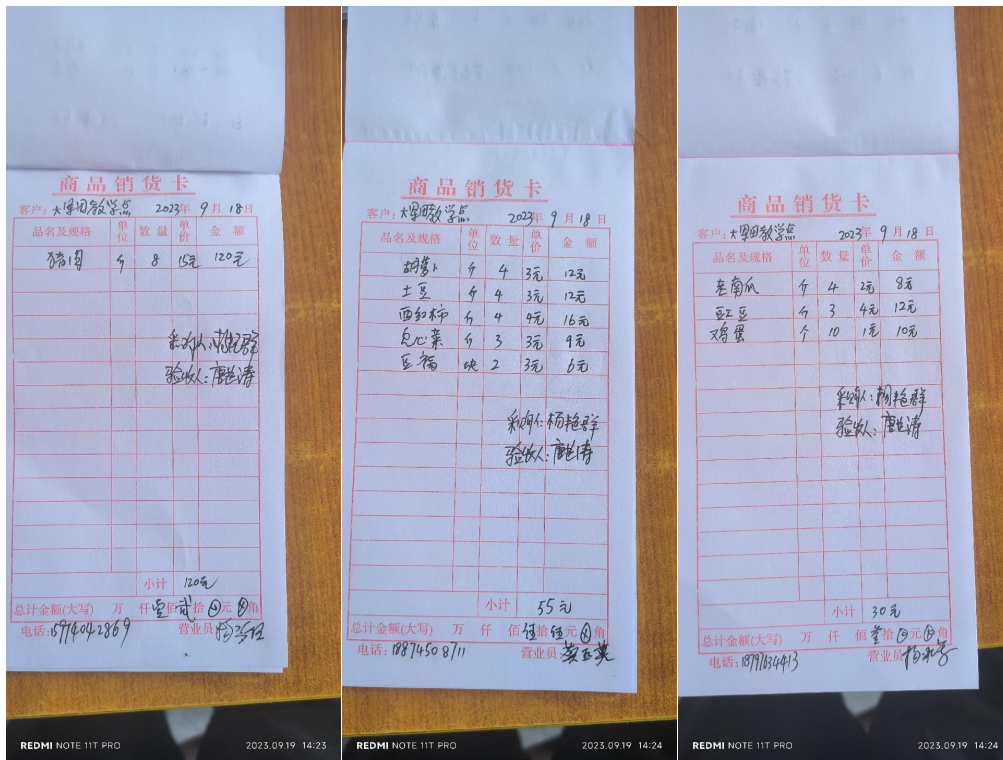 商品销货卡
客户：大军田教学点 2023年 9月 18日
品名及规格 单位 数量 单价 金额
猪肉 斤 8 15元 120元
采购人：
验收人：唐芝涛
小计 120元
总计金额(大写) 万 仟 壹佰 贰拾 元 角
电话：15974042869 营业员
REDMI NOTE 11T PRO 2023.09.19 14:23
商品销货卡
客户：大军田教学点 2023年 9月 18日
品名及规格 单位 数量 单价 金额
胡萝卜 斤 4 3元 12元
土豆 斤 4 3元 12元
西红柿 斤 4 4元 16元
包心菜 斤 3 3元 9元
豆福 块 2 3元 6元
采购人：杨艳群
验收人：唐芝涛
小计 55元
总计金额(大写) 万 仟 佰 伍拾 伍元 角
电话：18874508711 营业员
REDMI NOTE 11T PRO 2023.09.19 14:24
商品销货卡
客户：大军田教学点 2023年 9月 18日
品名及规格 单位 数量 单价 金额
老南瓜 斤 4 2元 8元
豇豆 斤 3 4元 12元
鸡蛋 个 10 1元 10元
采购人：杨艳群
验收人：唐芝涛
小计 30元
总计金额(大写) 万 仟 佰 叁拾 元 角
电话：18797634413 营业员
REDMI NOTE 11T PRO 2023.09.19 14:24